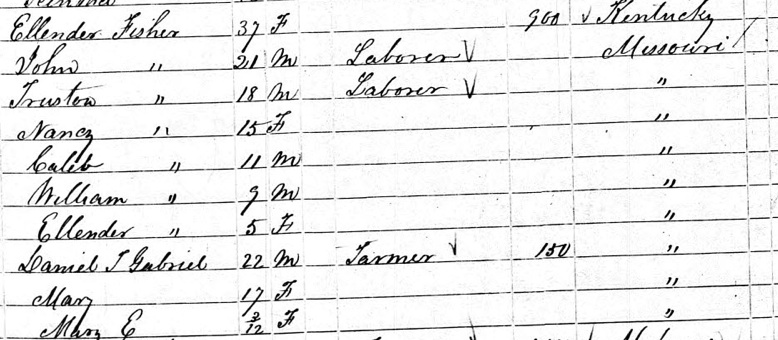 Ellender Fisher 37 F 900 √ Kentucky
John " 21 M Laborer √ Missouri /
Truston " 18 M Laborer √ "
Nancy " 15 F "
Caleb " 11 M "
William " 9 M "
Ellender " 5 F "
Daniel T Gabriel 22 M Farmer √ 150 "
Mary 17 F "
Mary E 3/12 F "